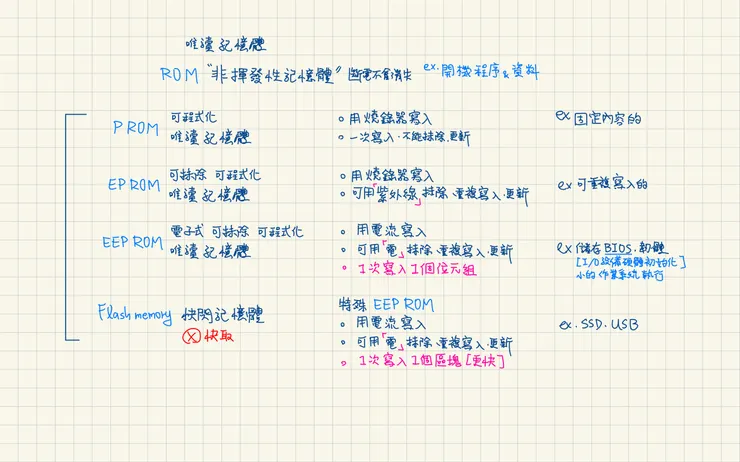 唯讀記憶體
ROM "非揮發性記憶體" 斷電不會消失 ex. 開機程序 & 資料
PROM 可程式化 唯讀記憶體
。用燒錄器寫入
。一次寫入、不能抹除、更新
ex 固定內容的
EPROM 可抹除 可程式化 唯讀記憶體
。用燒錄器寫入
。可用「紫外線」抹除、重複寫入、更新
ex 可重複寫入的
EEPROM 電子式 可抹除 可程式化 唯讀記憶體
。用電流寫入
。可用「電」抹除、重複寫入、更新
。1次寫入1個位元組
ex 儲存BIOS、韌體
[I/O設備硬體初始化]
小的作業系統執行
Flash memory 快閃記憶體
Ⓧ 快取
特殊 EEPROM
。用電流寫入
。可用「電」抹除、重複寫入、更新
。1次寫入1個區塊 [更快]
ex. SSD. USB